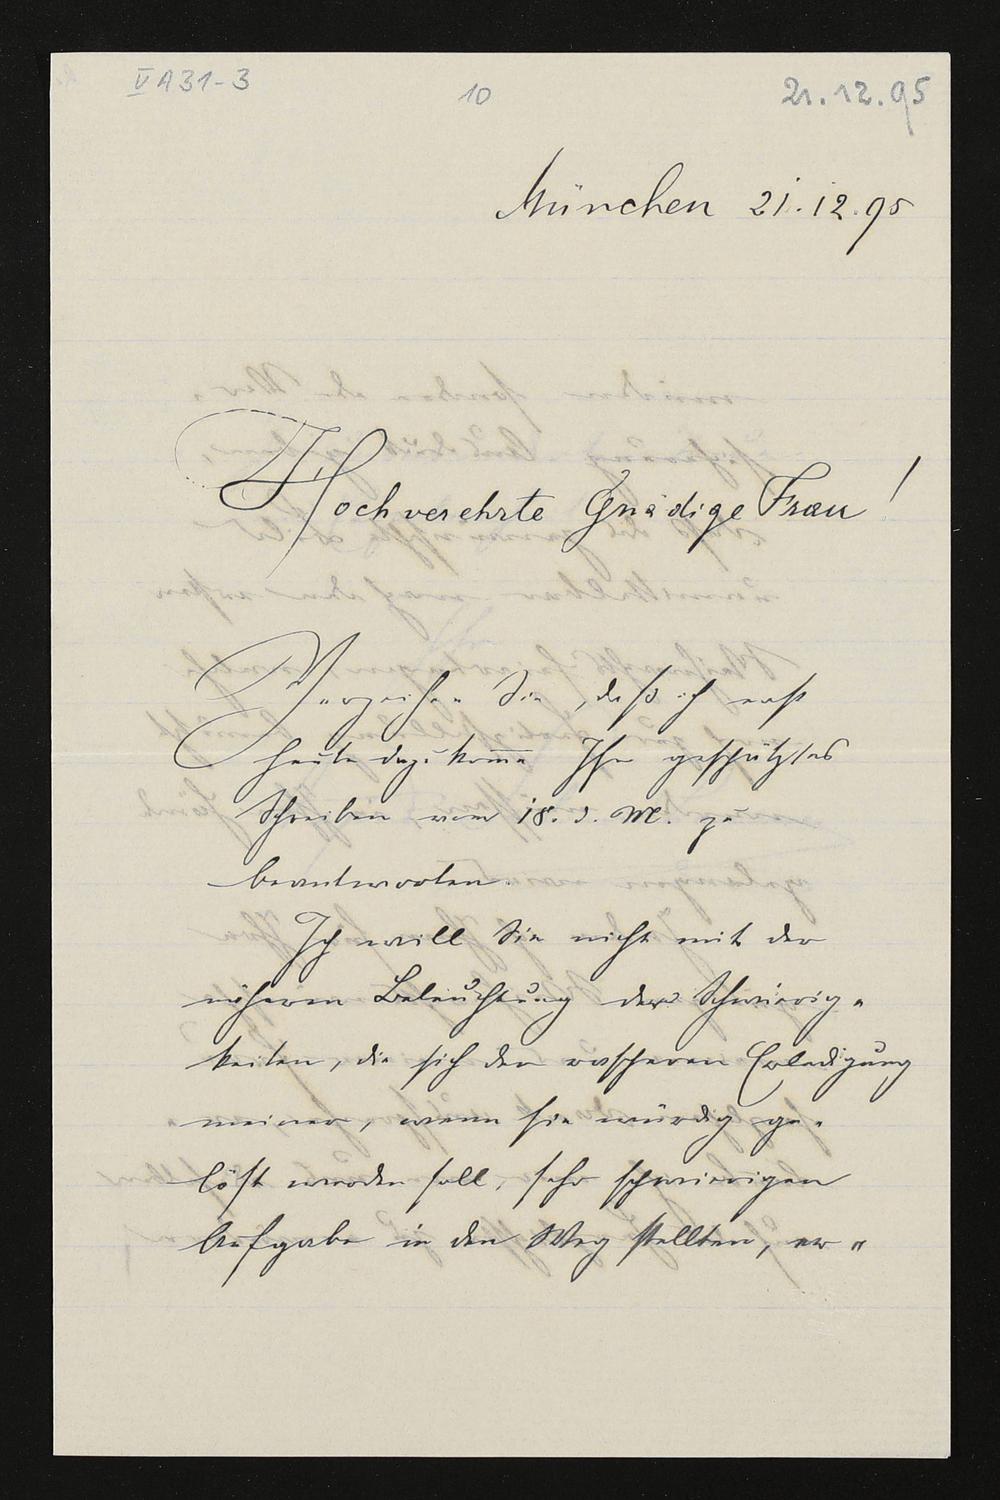 V A 31-3
10
21.12.95
München 21.12.95
Hochverehrte Gnädige Frau!
Verzeihen Sie, daß ich erst
heute dazu komme Ihr geschätztes
Schreiben vom 18. d. M. zu
beantworten.
Ich will Sie nicht mit der
näheren Beleuchtung der Schwierig-
keiten, die sich der rascheren Erledigung
meiner, wenn sie würdig ge-
löst werden soll, sehr schwierigen
Aufgabe in den Weg stellten, er-